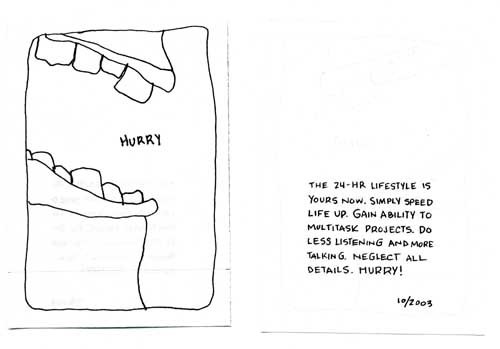 HURRY
THE 24-HR LIFESTYLE IS
YOURS NOW. SIMPLY SPEED
LIFE UP. GAIN ABILITY TO
MULTITASK PROJECTS. DO
LESS LISTENING AND MORE
TALKING. NEGLECT ALL
DETAILS. HURRY!
10/2003